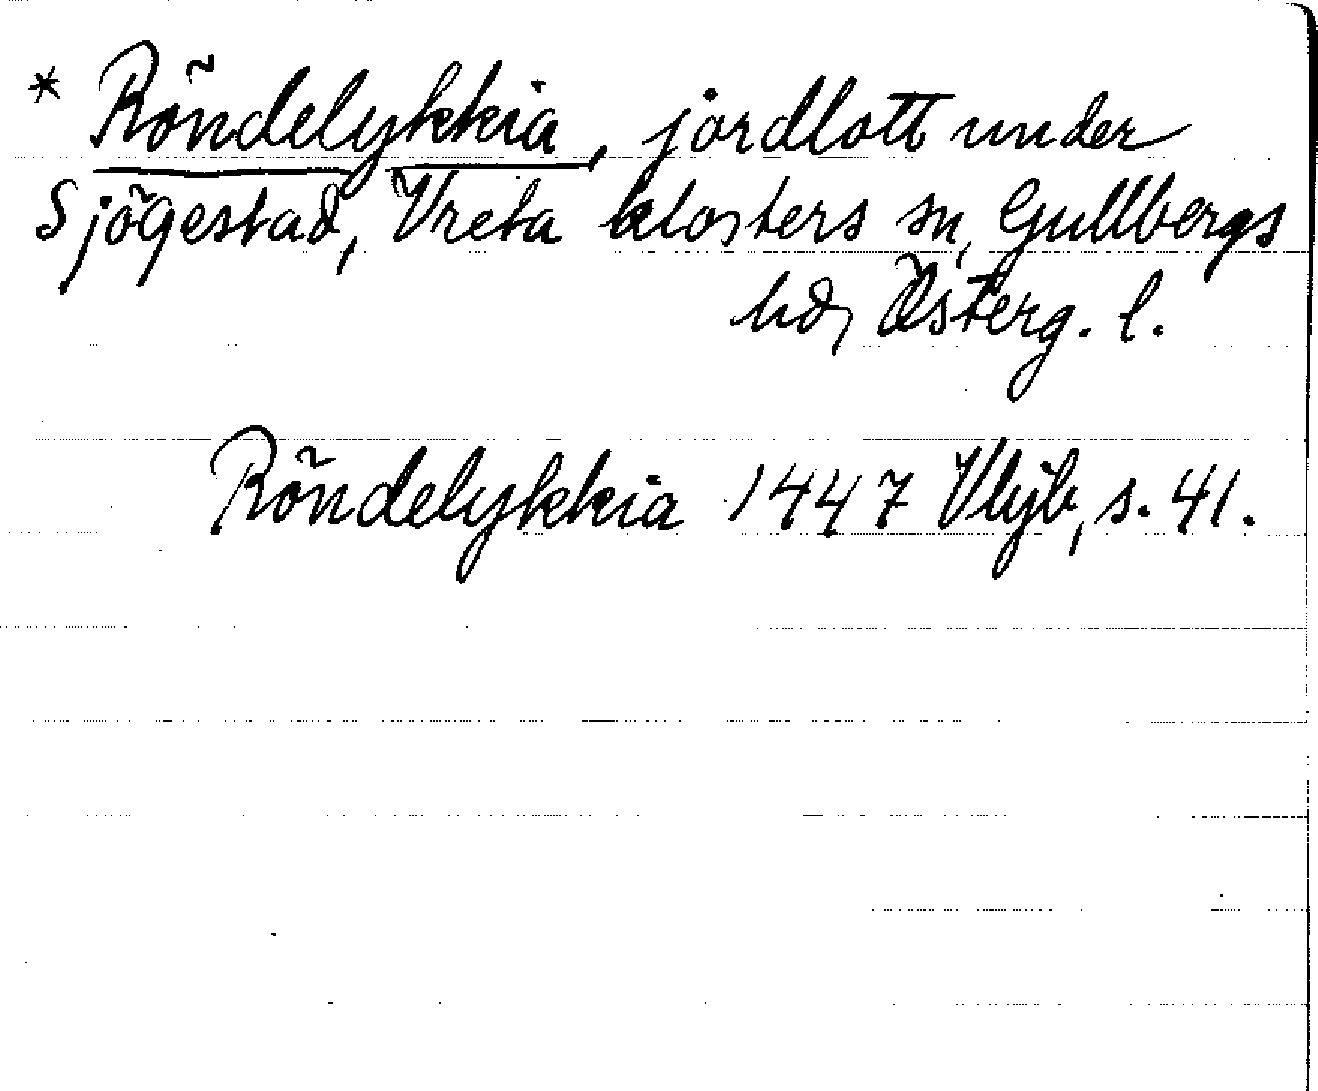 * Röndelykkia, jordlott under
Sjögestad, Vreta klosters sn, Gullbergs
hd, Österg. l.
Röndelykkia 1447 Vkjb, s. 41.